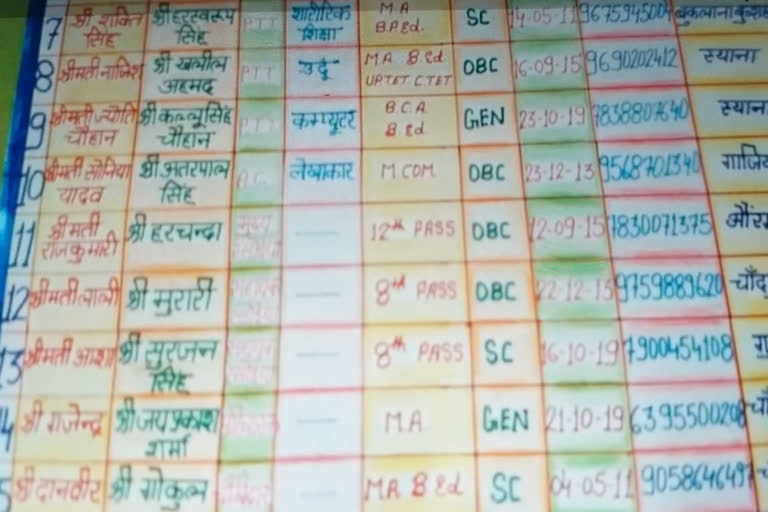 7 श्री शक्ति सिंह श्री हरस्वरूप सिंह PTT शारीरिक शिक्षा M.A B.P.Ed. SC 14-05-11 9675945004
8 श्रीमती नाजिश श्री खलील अहमद PTT उर्दू M.A B.Ed UPTET, CTET OBC 16-09-15 9690202412 स्याना
9 श्रीमती ज्योति चौहान श्री कल्लू सिंह चौहान PTT कम्प्यूटर B.C.A B.Ed GEN 23-10-19 7838807640 स्याना
10 श्रीमती सोनिया यादव श्री अतरपाल सिंह A.C. लेखाकार M.COM OBC 23-12-13 9568701340
11 श्रीमती राजकुमारी श्री हरचन्दा 12th PASS OBC 12-09-15 7830071375
12 श्रीमती लाली श्री मुरारी 8th PASS OBC 22-12-15 9759889620
13 श्रीमती आशा श्री सुरजन सिंह 8th PASS SC 16-10-19 7900454108
श्री राजेन्द्र श्री जयप्रकाश शर्मा M.A GEN 21-10-19
श्री दानवीर श्री गोकुल M.A B.Ed SC 04-05-11